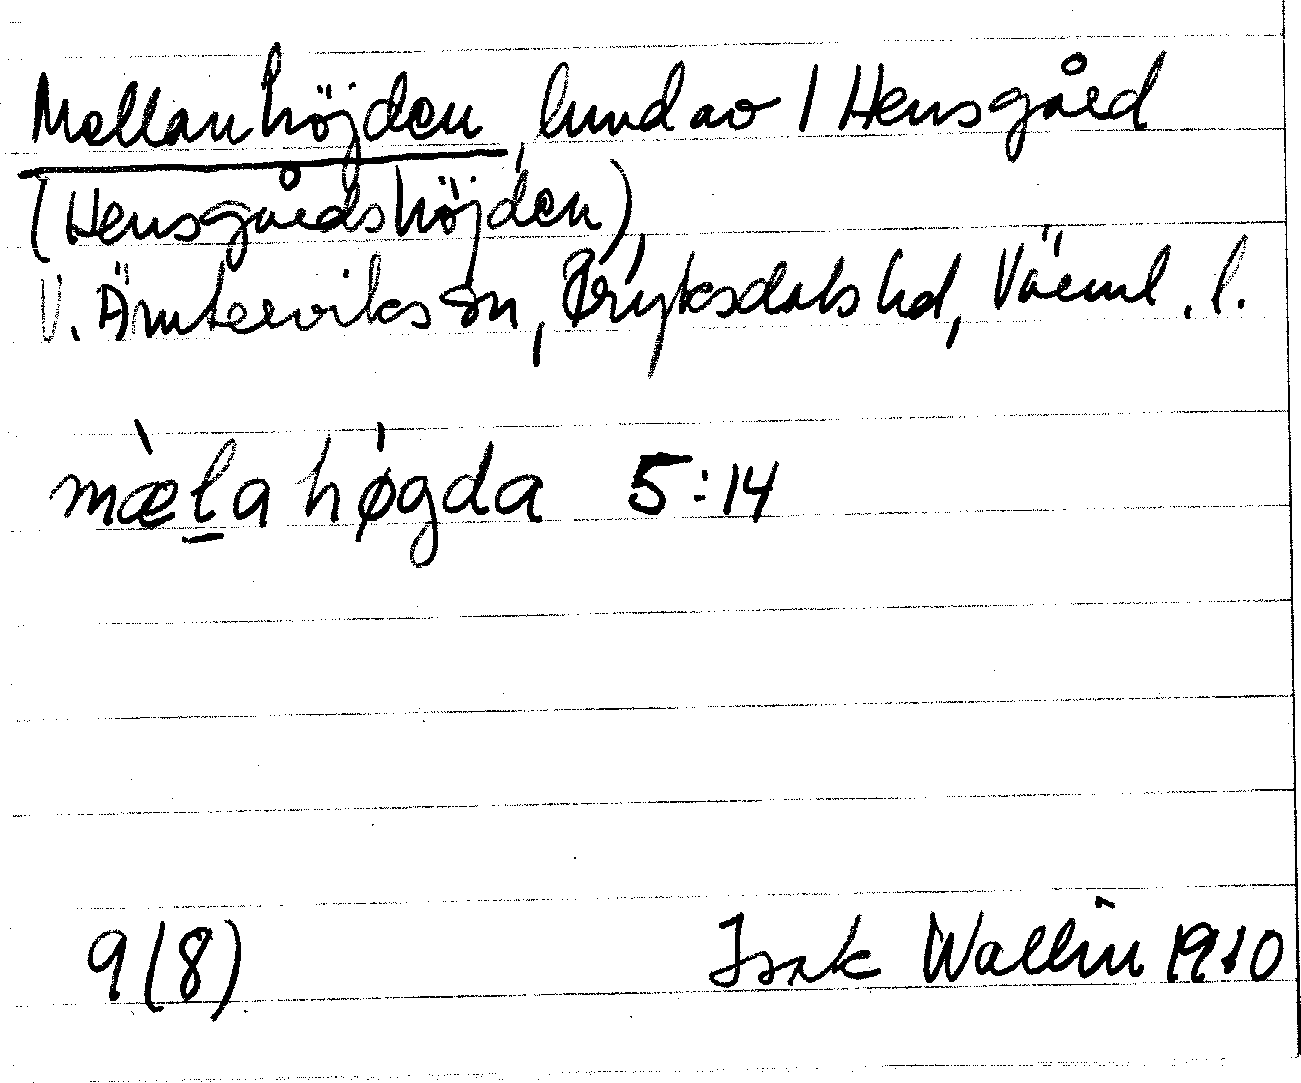 Mellanhöjden, lund av 1 Hensgård
(Hensgårdshöjden),
V. Ämterviks sn, Fryksdals hd, Värml. l.
mæ̀l̠a hø̍gda 5:14
9(8) Isak Wallin 1910